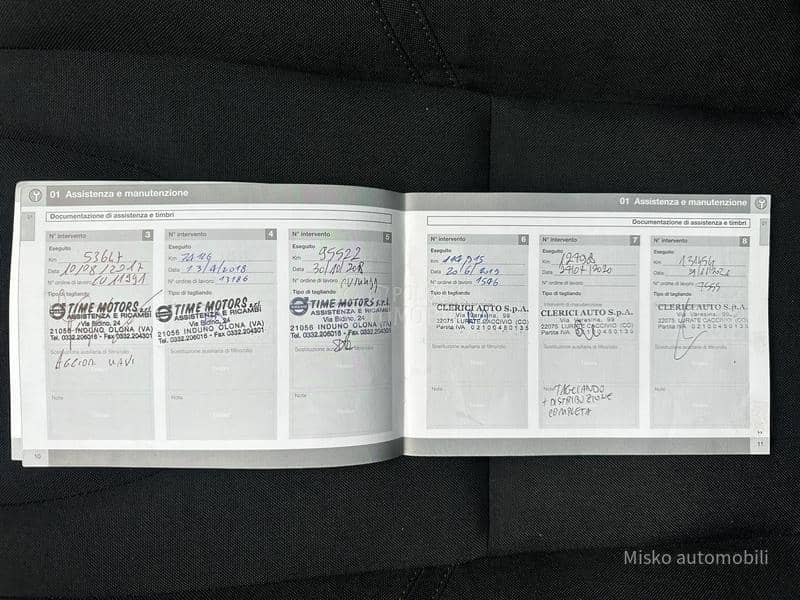 01 Assistenza e manutenzione
Documentazione di assistenza e timbri
N° intervento 3
Eseguito
Km 53647
Data 10/08/2017
N° ordine di lavoro
Tipo di tagliando
TIME MOTORS srl
ASSISTENZA E RICAMBI
Via Bidino, 24
21056 INDUNO OLONA (VA)
Tel. 0332.206016 - Fax 0332.204301
Sostituzione ausiliaria di filtro/olio
Note
10
N° intervento 4
Eseguito
Km
Data 13/4/2018
N° ordine di lavoro
Tipo di tagliando
TIME MOTORS srl
ASSISTENZA E RICAMBI
Via Bidino, 24
21056 INDUNO OLONA (VA)
Tel. 0332.206016 - Fax 0332.204301
Sostituzione ausiliaria di filtro/olio
Note
N° intervento 5
Eseguito
Km 95522
Data 30/10/2018
N° ordine di lavoro
Tipo di tagliando
TIME MOTORS srl
ASSISTENZA E RICAMBI
Via Bidino, 24
21056 INDUNO OLONA (VA)
Tel. 0332.206016 - Fax 0332.204301
Sostituzione ausiliaria
Note
01 Assistenza e manutenzione
Documentazione di assistenza e timbri
N° intervento 6
Eseguito
Km
Data 20/6/2019
N° ordine di lavoro 1506
Tipo di tagliando
CLERICI AUTO S.p.A.
Via Varesina, 99
22075 LURATE CACCIVIO (CO)
Partita IVA 02100480135
Sostituzione ausiliaria di filtro/olio
Note
N° intervento 7
Eseguito
Km
Data 27/07/2020
N° ordine di lavoro
Tipo di tagliando
CLERICI AUTO S.p.A.
Via Varesina, 99
22075 LURATE CACCIVIO (CO)
Partita IVA 02100480135
Sostituzione ausiliaria di filtro/olio
Note
TAGLIANDO
+ DISTRIBUZIONE
COMPLETA
N° intervento 8
Eseguito
Km
Data
N° ordine di lavoro
Tipo di tagliando
CLERICI AUTO S.p.A.
Via Varesina, 99
22075 LURATE CACCIVIO (CO)
Partita IVA 02100480135
Sostituzione ausiliaria di filtro/olio
Note
11
Misko automobili